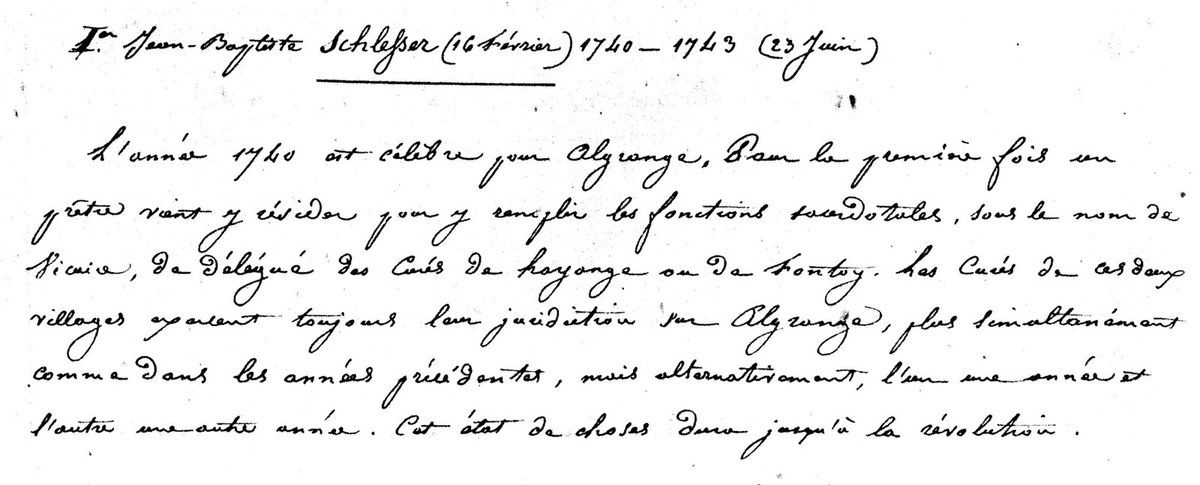 Ier Jean-Baptiste Schlesser (16 Février) 1740 - 1743 (23 Juin)
L'année 1740 est célèbre pour Algrange. Pour la première fois un
prêtre vient y résider pour y remplir les fonctions sacerdotales, sous le nom de
Vicaire, de délégué des Curés de hayange ou de Fontoy. Les Curés de ces deux
villages exercent toujours leur juridiction sur Algrange, plus simultanément
comme dans les années précédentes, mais alternativement, l'un une année et
l'autre une autre année. Cet état de choses dura jusqu'à la révolution.